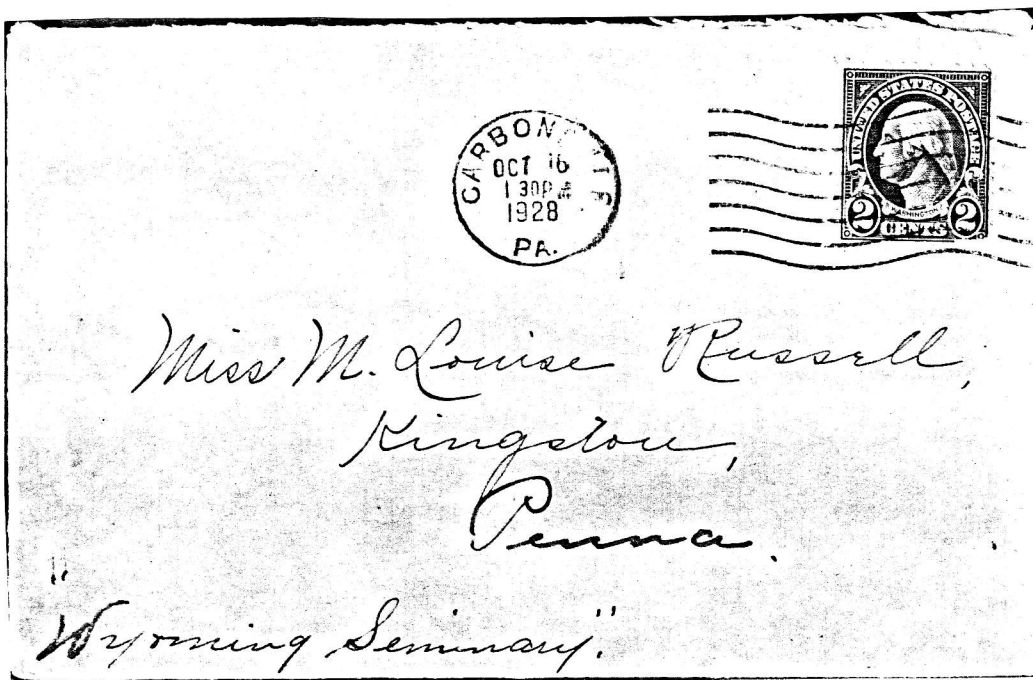 CARBONDALE
OCT 16
1 30 PM
1928
PA.
UNITED STATES POSTAGE
WASHINGTON
2 CENTS 2
Miss M. Louise Russell,
Kingston,
Penna.
"Wyoming Seminary."